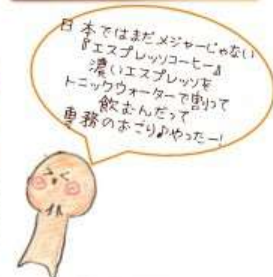 日本ではまだメジャーじゃない
『エスプレッソコーヒー』
濃いエスプレッソを
トニックウォーターで割って
飲むんだって
専務のおごり♪やったー!